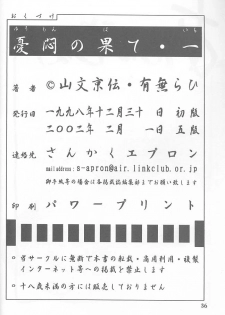 おくづけ
憂悶の果て・一
著者 ©山文京伝・有無らひ
発行日 一九九八年十二月三十日 初版
二〇〇二年 二月 一日 五版
連絡先 さんかくエプロン
mail address : s-apron@air.linkclub.or.jp
御手紙等の場合は各掲載誌編集部までお願い致します
印刷 パワープリント
○ 当サークルに無断で本書の転載・商用利用・複製
インターネット等への掲載を禁止します
○ 十八歳未満の方には販売しておりません
56